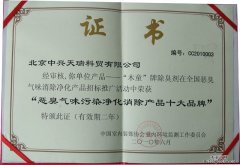 证书
编号:CC2010003
北京中兴天瑞科贸有限公司
经审核,你单位产品——“木童”牌除臭剂在全国恶臭
气味消除净化产品招标推广活动中荣获
“恶臭气味污染净化消除产品十大品牌”
特颁此证(有效期二年)
中国室内装饰协会室内环境监测工作委员会
二〇一〇年六月